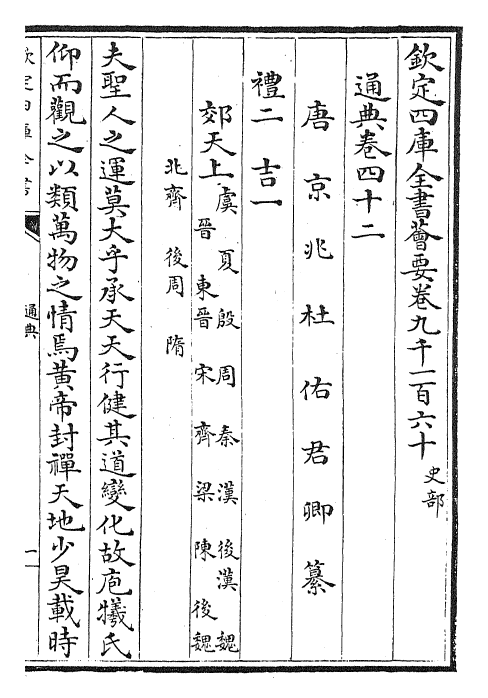 欽定四庫全書薈要卷九千一百六十 史部
通典卷四十二
唐京兆杜佑君卿纂
禮二 吉一
郊天上 虞 夏 殷 周 秦 漢 後漢 魏
晉 東晉 宋 齊 梁 陳 後魏
北齊 後周 隋
夫聖人之運莫大乎承天天行健其道變化故庖犧氏
仰而觀之以類萬物之情焉黃帝封禪天地少昊載時
欽定四庫全書
通典
一